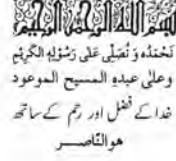 بسم الله الرحمن الرحيم
نَحْمَدُه وَ نُصَلِّی عَلٰی رَسُوْلِهِ الْکَرِیْمِ
وعلٰی عبدهِ المسیح الموعود
خدا کے فضل اور رحم کے ساتھ
هو النّاصـــر